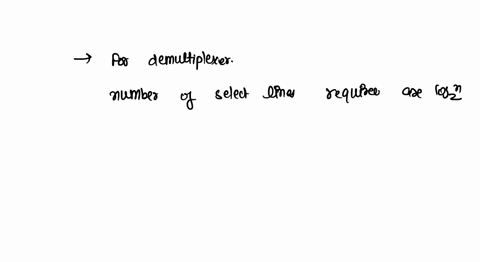 → for demultiplexer.
number of select lines requires are log₂n